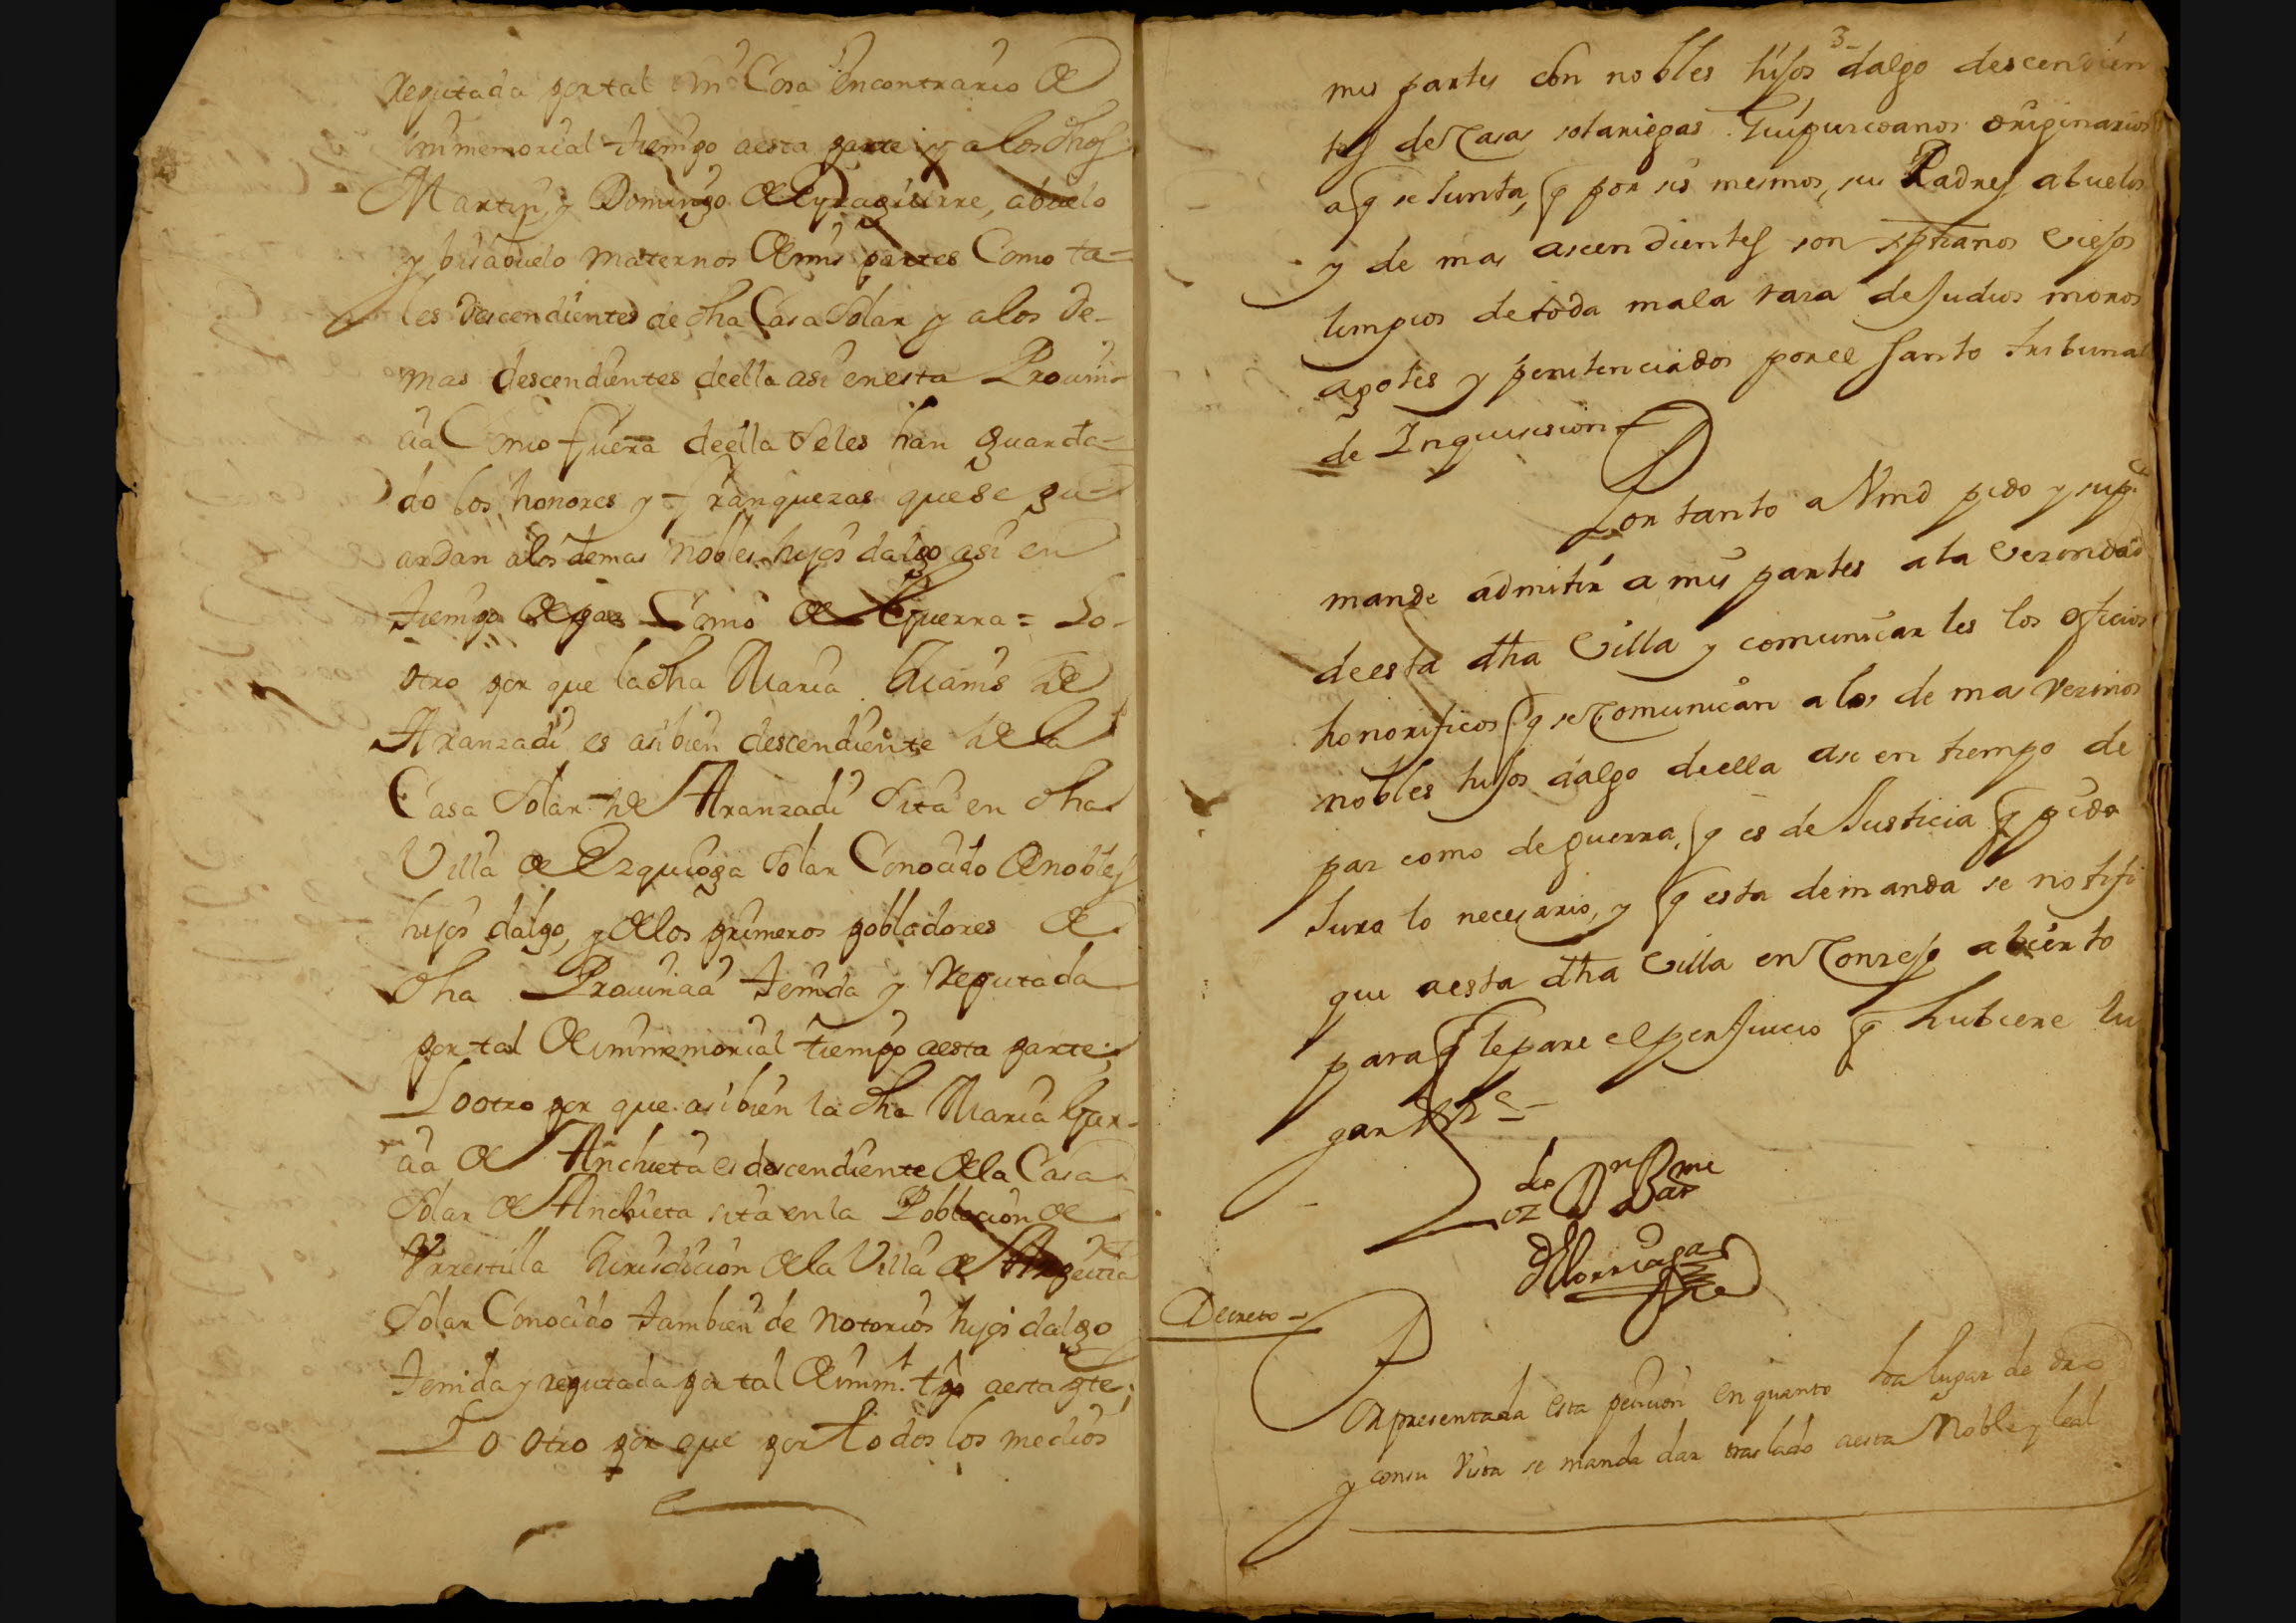 Reputada por tal sin Cosa encontrario de
immemorial tiempo aesta parte y a los dhos
Martin y Domingo de Eyzaguirre, abuelo
y bisabuelo maternos de mis partes Como ta-
les descendientes de dha Casa Solar y alos de-
mas descendientes deella asi enesta Provin-
cia Como fuera deella seles han guarda-
do los honores y franquezas quese gu-
ardan alos demas nobles hijos dalgo asi en
tiempo de paz Como de Guerra = Lo-
otro por que la dha Maria Ramis de
Aranzadi es asibien descendiente de la
Casa Solar de Aranzadi Sita en dha
Villa de Ezquioga Solar Conocido de nobles
hijos dalgo, y de los primeros pobladores de
dha Provincia tenida y Reputada
por tal de immemorial tiempo aesta parte;
Lootro por que asibien la dha Maria Gar-
cia de Anchieta es descendiente de la Casa
Solar de Anchieta sita en la Poblacion de
Vrrestilla Jurisdicion de la Villa de Azpeitia
Solar Conocido tambien de notorios hijos dalgo
tenida y reputada por tal de imm.l tpo aesta pte;
Lo otro por que por todos los medios
3
mis partes son nobles hijos dalgo descendien
tes de Casas solariegas Guipuzcoanos originarios
a q se Junta, q por sis mesmos, sus Padres, abuelos
y de mas ascendientes son xptianos viejos
limpios de toda mala raza de Judios moros
agotes y penitenciados por el santo tribunal
de Inquisision =
Por tanto a Vmd pido y sup.co
mande admitir a mis partes a la vezindad
de esta dha Villa y comunicarles los oficios
honorificos q se Comunican a los de mas vezinos
nobles hijos dalgo de ella asi en tiempo de
paz como de guerra, q es de Justicia q pido
Juro lo necesario, y q esta demanda se notifi
que a esta dha Villa en Conzejo abierto
para q le pare el perjuicio q hubiere lu
gar
Elorriaga
Decreto =
Por presentada esta peticion en quanto ha lugar de dro
y con su vista se manda dar traslado a esta Noble y leal